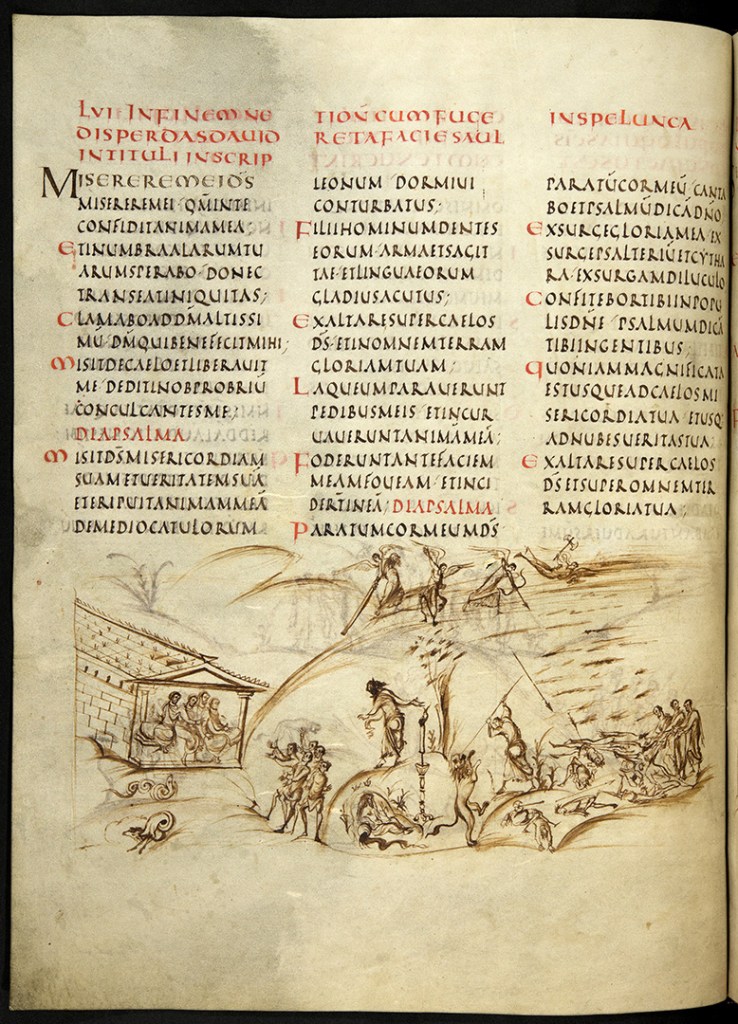 LVI INFINEM NE
DISPERDAS DAVID
IN TITULI INSCRIP
MISERERE MEI D̄S
MISERERE MEI QM̄ IN TE
CONFIDIT ANIMA MEA;
ET IN UMBRA ALARUM TU
ARUM SPERABO DONEC
TRANSEAT INIQUITAS;
CLAMABO AD D̄M ALTISSI
MU D̄M QUI BENEFECIT MIHI;
MISIT DE CAELO ET LIBERAUIT
ME DEDIT IN OBPROBRIU
CONCULCANTES ME;
DIAPSALMA
MISIT D̄S MISERICORDIAM
SUAM ET UERITATEM SUĀ
ET ERIPUIT ANIMAM MEĀ
DE MEDIO CATULORUM
TIOŇ CUM FUGE
RET A FACIE SAUL
LEONUM DORMIUI
CONTURBATUS;
FILII HOMINUM DENTES
EORUM ARMA ET SAGIT
TAE ET LINGUA EORUM
GLADIUS ACUTUS;
EXALTARE SUPER CAELOS
D̄S ET IN OMNEM TERRAM
GLORIAM TUAM;
LAQUEUM PARAUERUNT
PEDIBUS MEIS ET INCUR
UAUERUNT ANIMĀ MEĀ;
FODERUNT ANTE FACIEM
MEAM FOUEAM ET INCI
DER̄T IN EĀ; DIAPSALMA
PARATUM COR MEUM D̄S
IN SPELUNCA
PARATŪ COR MEŪ CANTA
BO ET PSALMŪ DICĀ DN̄O
EXSURGE GLORIA MEA EX
SURGE PSALTERIŪ ET CYTHA
RA EXSURGAM DILUCULO
CONFITEBOR TIBI IN POPU
LIS DN̄E PSALMUM DICĀ
TIBI IN GENTIBUS;
QUONIAM MAGNIFICATA
EST USQUE AD CAELOS MI
SERICORDIA TUA ET USQ
AD NUBES UERITAS TUA
EXALTARE SUPER CAELOS
D̄S ET SUPER OMNEM TER
RAM GLORIA TUA;